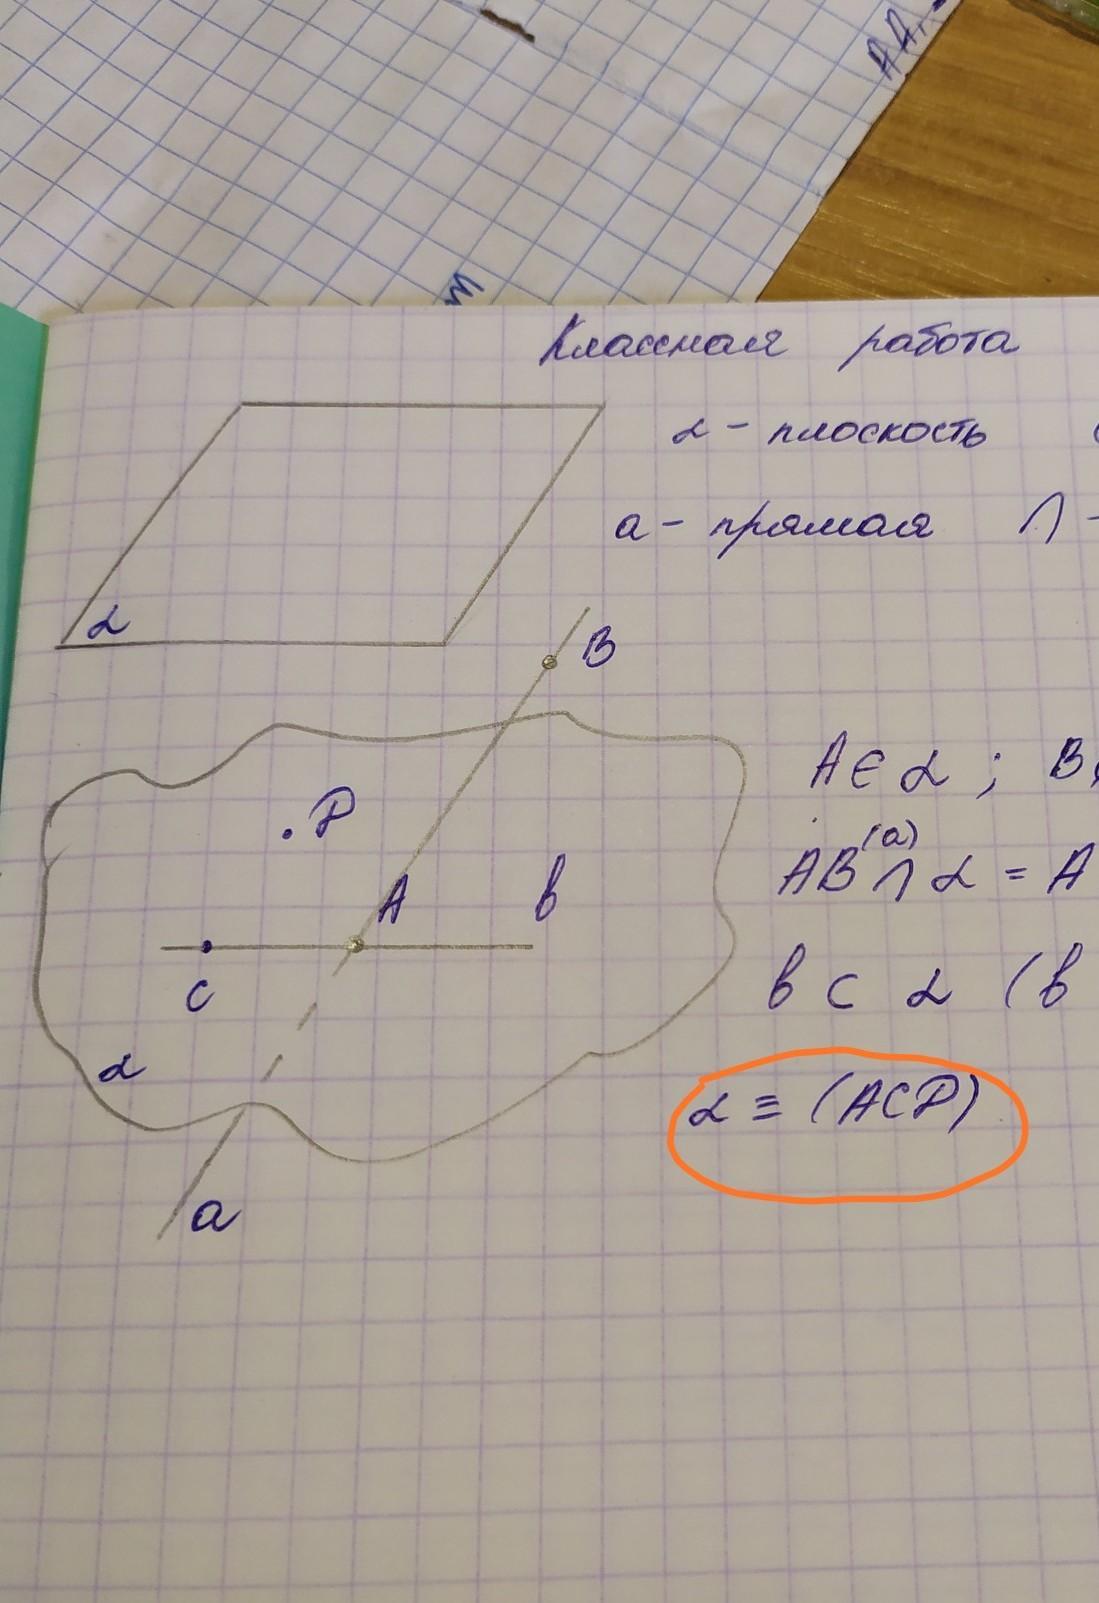 АА₁
m
Классная работа
α - плоскость
а - прямая ∩ -
α
B
A ∈ α ; B
.P
(a)
AB ∩ α = A
A
b
c
b ⊂ α (b
α
α ≡ (ACP)
a